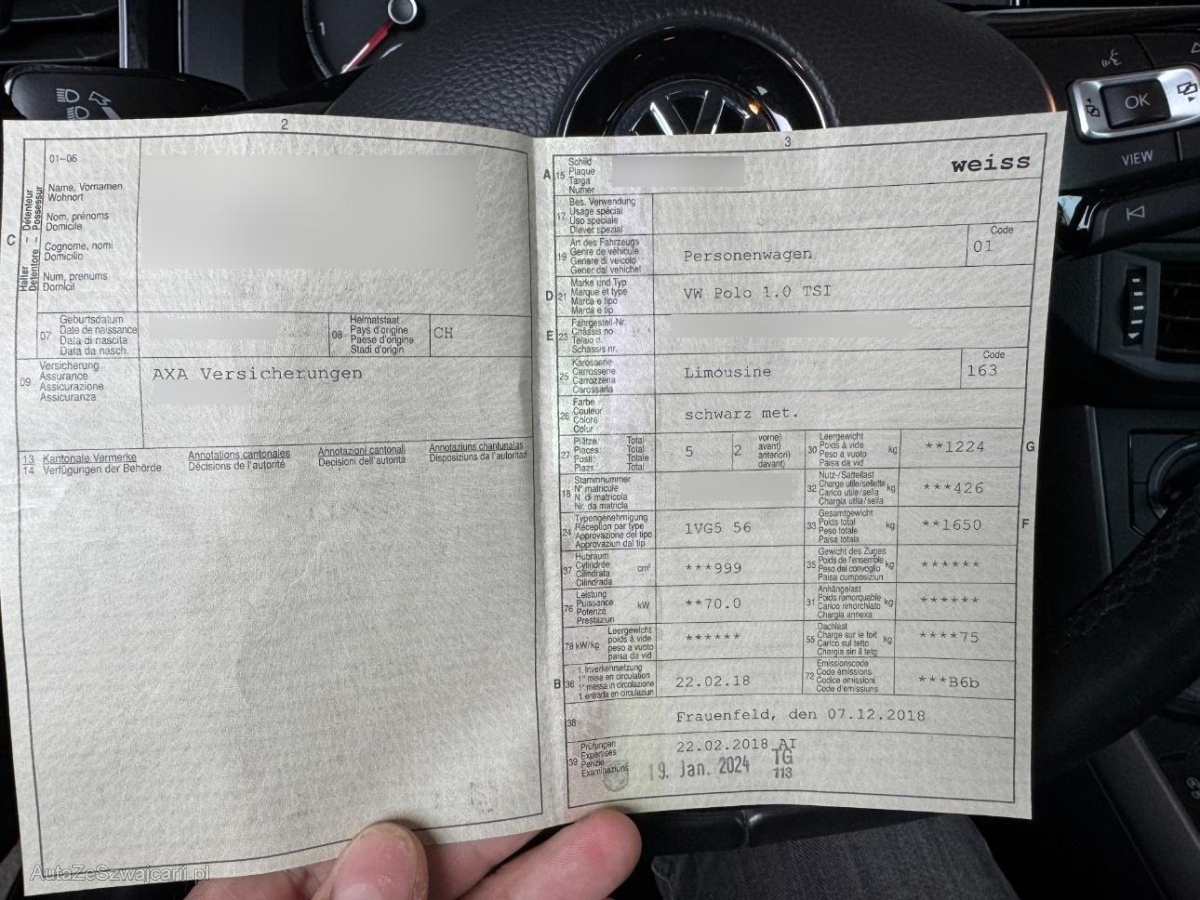 OK
VIEW
2
01–06
Halter – Détenteur
Detentore – Possessur
C
Name, Vornamen
Wohnort
Nom, prénoms
Domicile
Cognome, nomi
Domicilio
Num, prenums
Domicil
07
Geburtsdatum
Date de naissance
Data di nascita
Data da nasch.
08
Heimatstaat
Pays d'origine
Paese d'origine
Stadi d'origin
CH
09
Versicherung
Assurance
Assicurazione
Assicuranza
AXA Versicherungen
13 Kantonale Vermerke
14 Verfügungen der Behörde
Annotations cantonales
Décisions de l'autorité
Annotazioni cantonali
Decisioni dell'autorità
Annotaziuns chantunalas
Disposiziuns da l'autoritad
3
A 15
Schild
Plaque
Targa
Numer
weiss
17
Bes. Verwendung
Usage spécial
Uso speciale
Diever spezial
19
Art des Fahrzeugs
Genre de véhicule
Genere di veicolo
Gener dal vehichel
Personenwagen
Code
01
D 21
Marke und Typ
Marque et type
Marca e tipo
Marca e tip
VW Polo 1.0 TSI
E 23
Fahrgestell-Nr.
Châssis no
Telaio n.
Schassis nr.
25
Karosserie
Carrosserie
Carrozzeria
Carossaria
Limousine
Code
163
26
Farbe
Couleur
Colore
Colur
schwarz met.
27
Plätze: Total
Places: Total
Posti: Totale
Plazs: Total
5
2
vorne)
avant)
anteriori)
davant)
30
Leergewicht
Poids à vide
Peso a vuoto
Paisa da vid
kg
**1224
G
18
Stammnummer
N° matricule
N. di matricola
Nr. da matricla
32
Nutz-/Sattellast
Charge utile/sellette
Carico utile/sella
Chargia utila/sella
kg
***426
24
Typengenehmigung
Réception par type
Approvazione del tipo
Approvaziun dal tip
1VG5 56
33
Gesamtgewicht
Poids total
Peso totale
Paisa totala
kg
**1650
F
37
Hubraum
Cylindrée
Cilindrata
Cilindrada
cm³
***999
35
Gewicht des Zuges
Poids de l'ensemble
Peso del convoglio
Paisa cumposiziun
kg
******
76
Leistung
Puissance
Potenza
Prestaziun
kW
**70.0
31
Anhängelast
Poids remorquable
Carico rimorchiato
Chargia annexa
kg
******
78 kW/kg
Leergewicht
poids à vide
peso a vuoto
paisa da vid
******
55
Dachlast
Charge sur le toit
Carico sul tetto
Chargia sin il tetg
kg
****75
B 36
1. Inverkehrsetzung
1re mise en circulation
1a messa in circolazione
1. entrada en circulaziun
22.02.18
72
Emissionscode
Code émissions
Codice emissioni
Code d'emissiuns
***B6b
38
Frauenfeld, den 07.12.2018
39
Prüfungen
Expertises
Perizie
Examinaziuns
22.02.2018 AI
19. Jan. 2024
TG
113
AutaZeSzwajcarii.pl